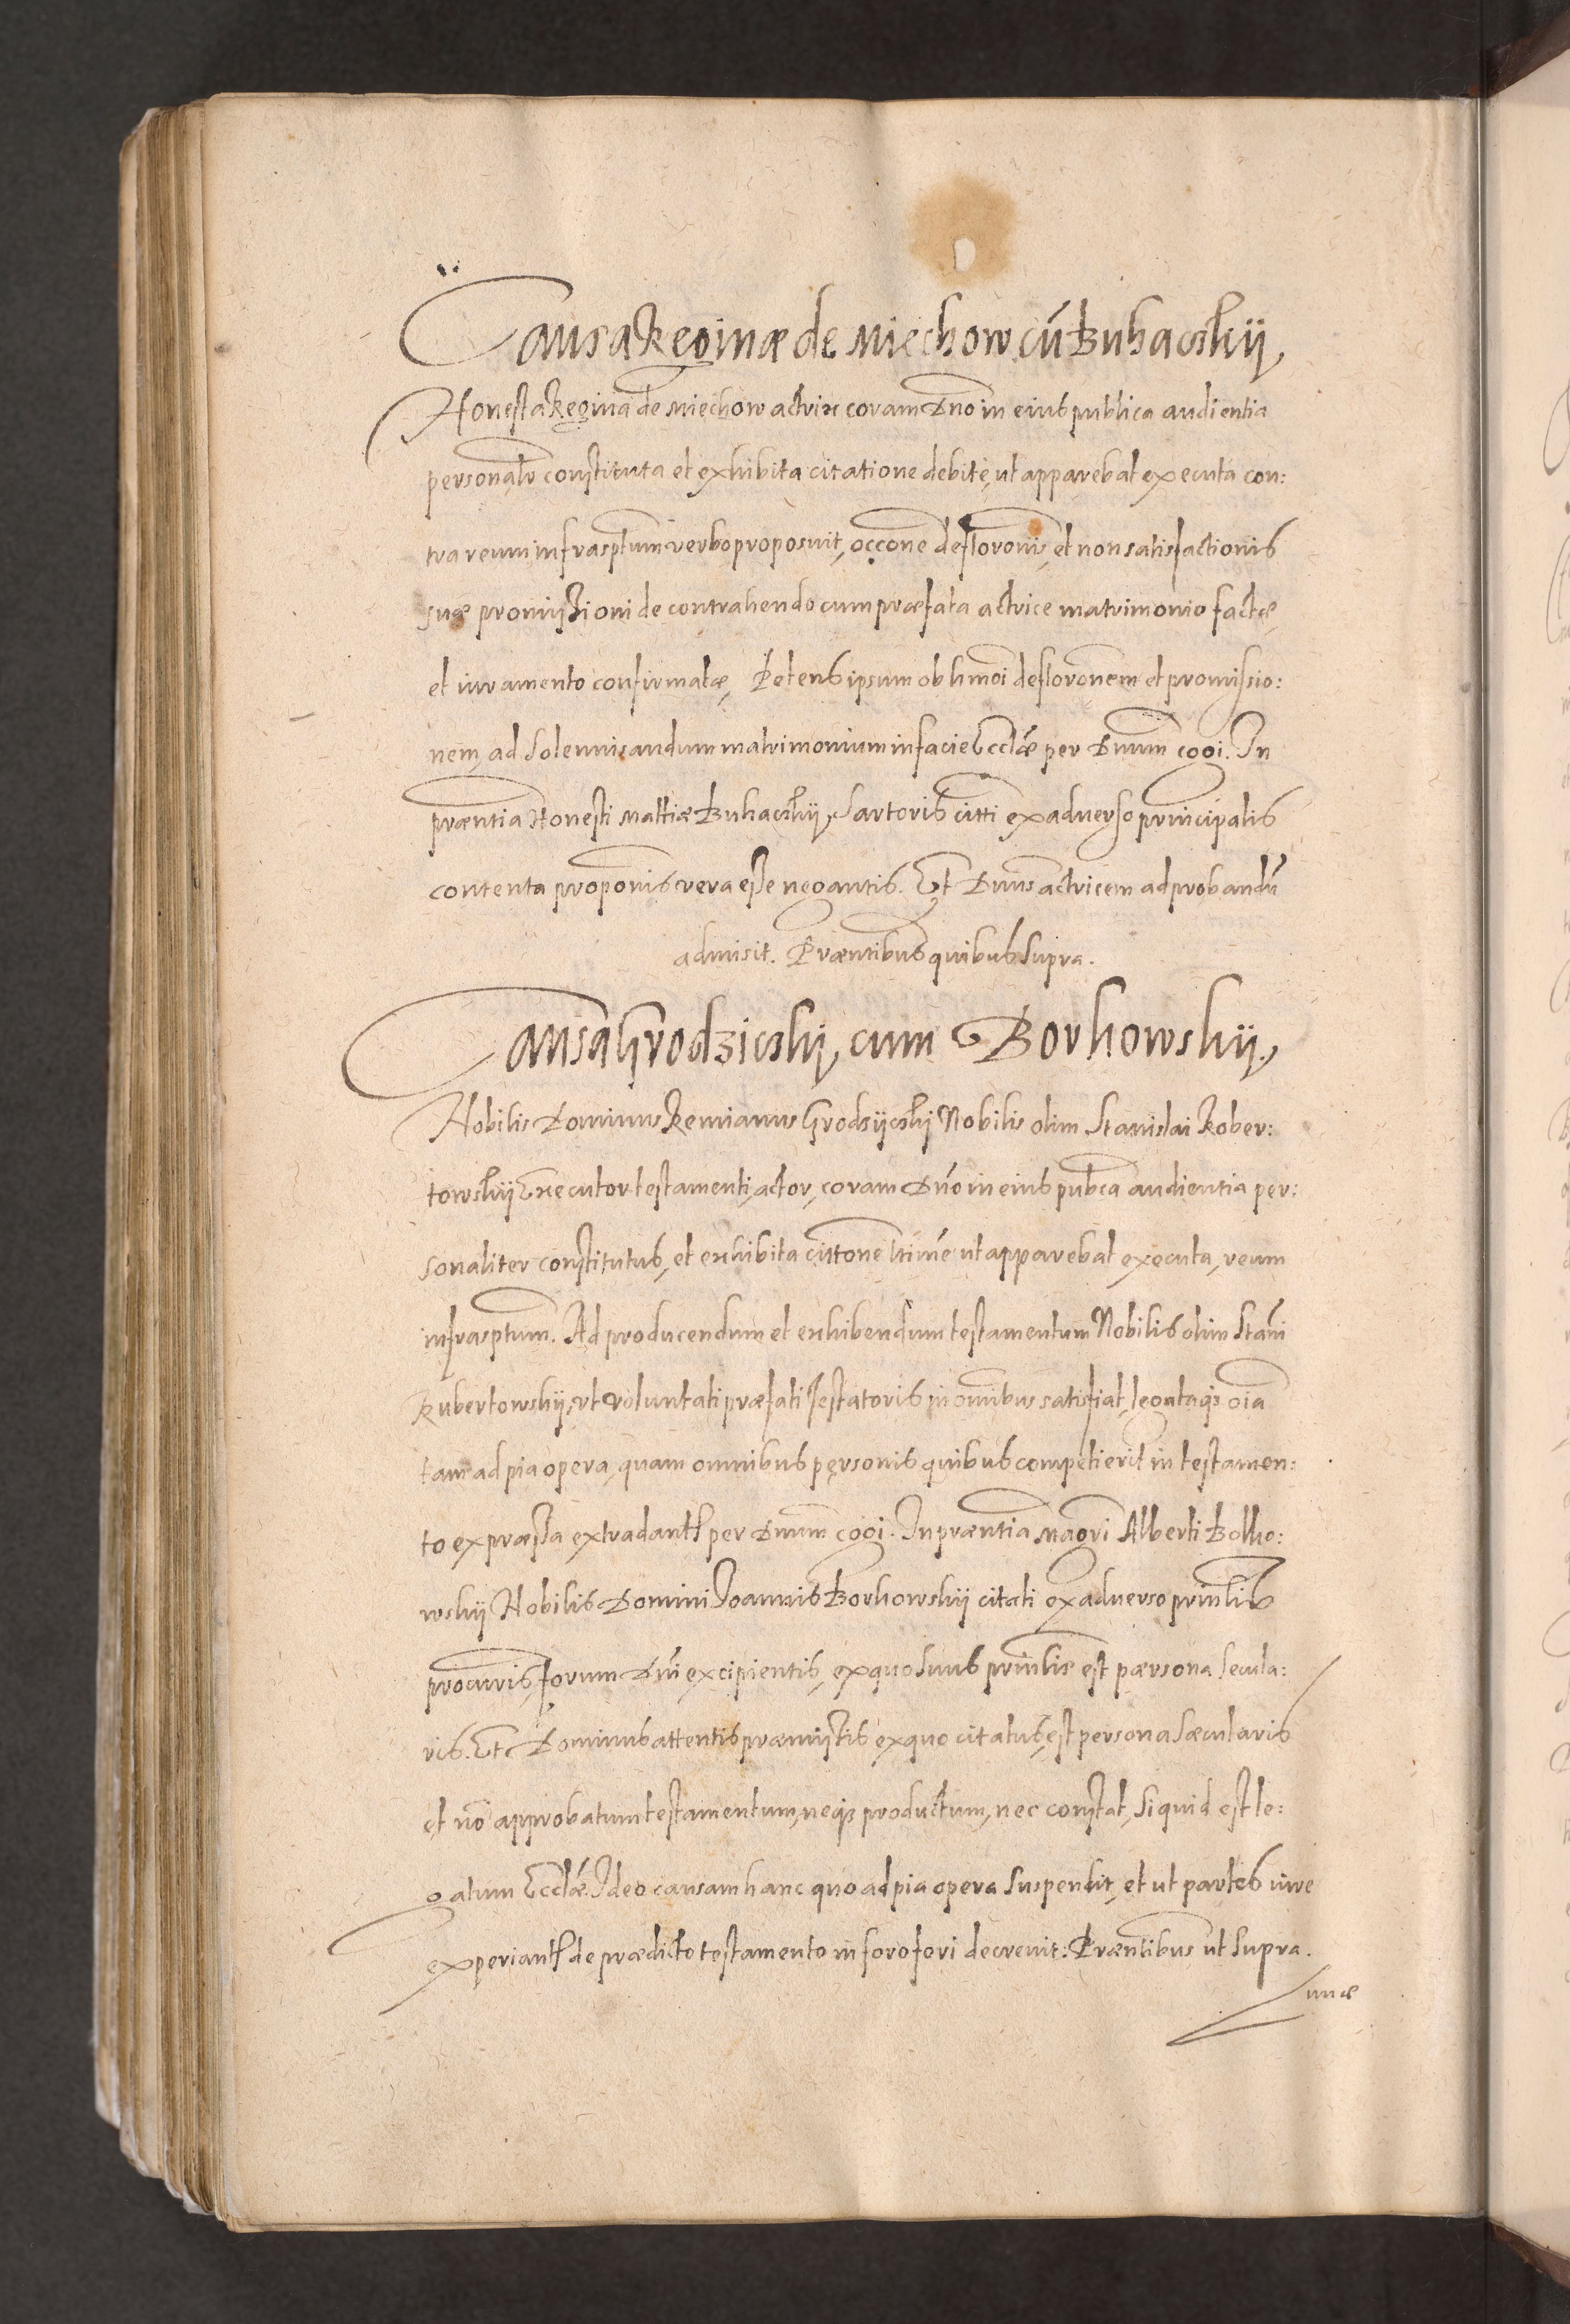 Causa Reginæ de Miechow cū Buhaczkij,
Honesta Regina de Miechow actrix coram Dno in eius publica audientia
personalr constituta et exhibita citatione debite, ut apparebat executa con:
tra reum infrasptum verbo proposuit, occone defloronis, et non satisfactionis
suæ promissioni de contrahendo cum præfata actrice matrimonio factæ,
et iuramento confirmatæ, Petens ipsum ob hmoi defloronem et promissio:
nem, ad solennisandum matrimonium in facie Ecclæ per Dnum cogi. In
præntia Honesti Mattiæ Buhaczkij, Sartoris citti ex adverso principalis
contenta proponis vera esse negantis. Et Dnus actricem ad probandū
admisit. Præntibus quibus supra.
Causa Grodzicskij, cum Borkowskij,
Nobilis Dominus Remianus Grodsijcskij Nobilis olim Stanislai Rober:
towskij Executor testamenti, actor, coram Dno in eius pubca audientia per:
sonaliter constitutus, et exhibita cittone ltime ut apparebat executa, reum
infrasptum. Ad producendum et exhibendum testamentum Nobilis olim Stani
Rubertowskij, ut voluntati præfati Testatoris in omibus satisfiat, legataqз oia
tam ad pia opera, quam omnibus personis quibus competierit in testamen:
to expræssa extradantr per Dnum cogi. In præntia Magri Alberti Bolko:
wskij Nobilis Domini Joannis Borkowskij citati ex adverso prinlis
procuris, forum Dni excipientis, ex quo suus prinlis est pærsona secula:
ris. Et Dominus attentis præmissis ex quo citatus, est persona sæcularis
et nō approbatum testamentum, neqз productum, nec constat, si quid est le:
gatum Ecclæ. Ideo causam hanc quo ad pia opera suspendit, et ut partes iure
experiantr de prædicto testamento in foro fori decrevit: Præntibus ut supra.
Lunæ